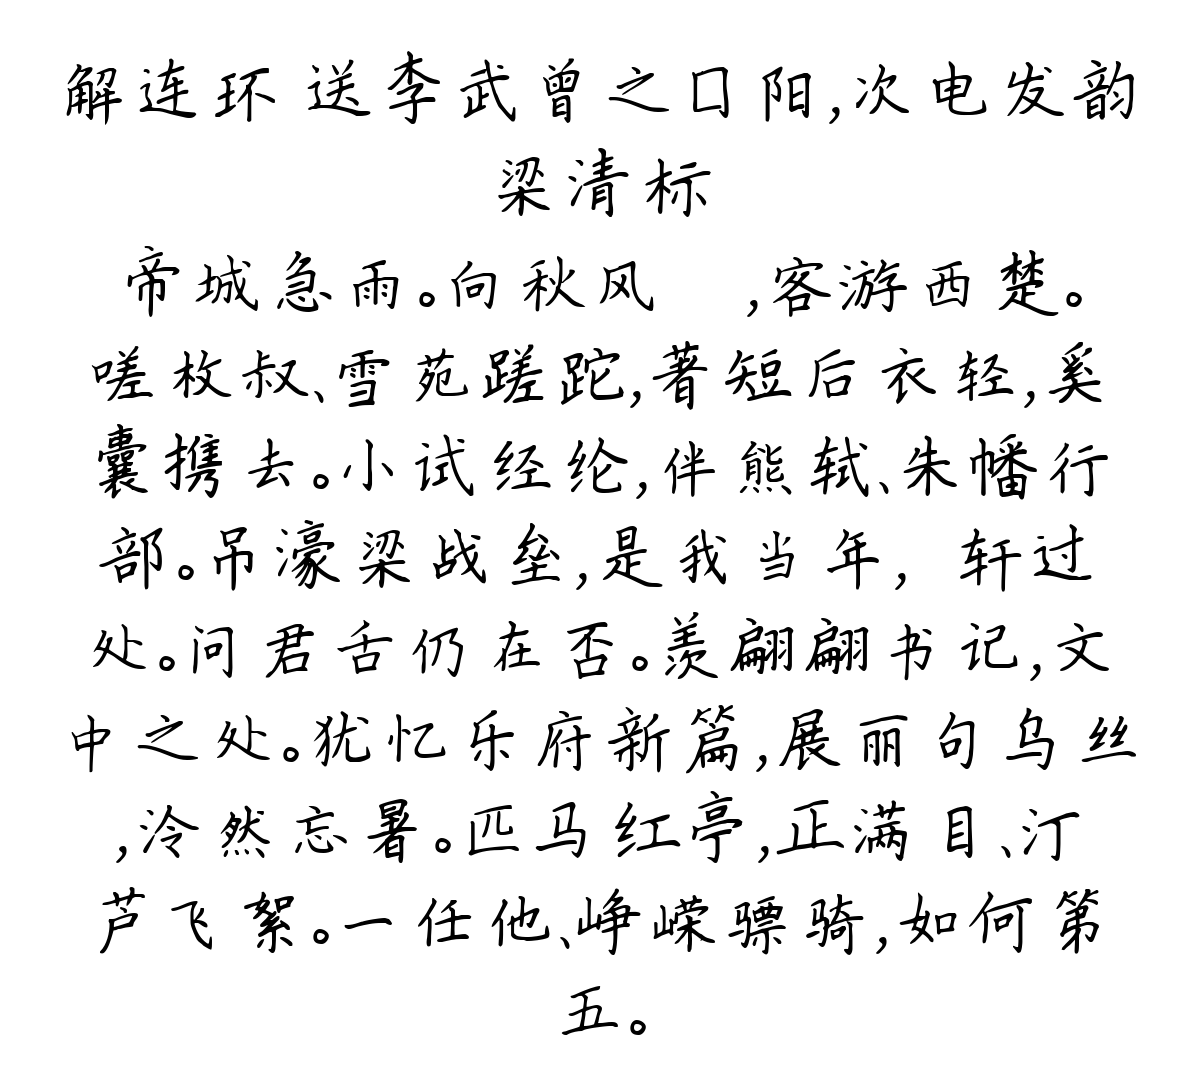 解连环 送李武曾之口阳,次电发韵
梁清标
帝城急雨。向秋风 ,客游西楚。
嗟枚叔、雪苑蹉跎,著短后衣轻,奚
囊携去。小试经纶,伴熊轼、朱幡行
部。吊濠梁战垒,是我当年, 轩过
处。问君舌仍在否。羡翩翩书记,文
中之处。犹忆乐府新篇,展丽句乌丝
,泠然忘暑。匹马红亭,正满目、汀
芦飞絮。一任他、峥嵘骠骑,如何第
五。